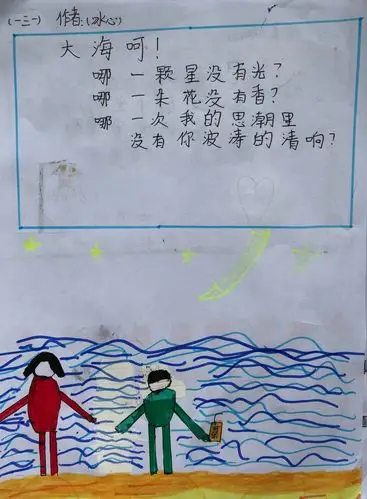 (一三一) 作者:(冰心)
大海呵!
哪一颗星没有光?
哪一朵花没有香?
哪一次我的思潮里
没有你波涛的清响?